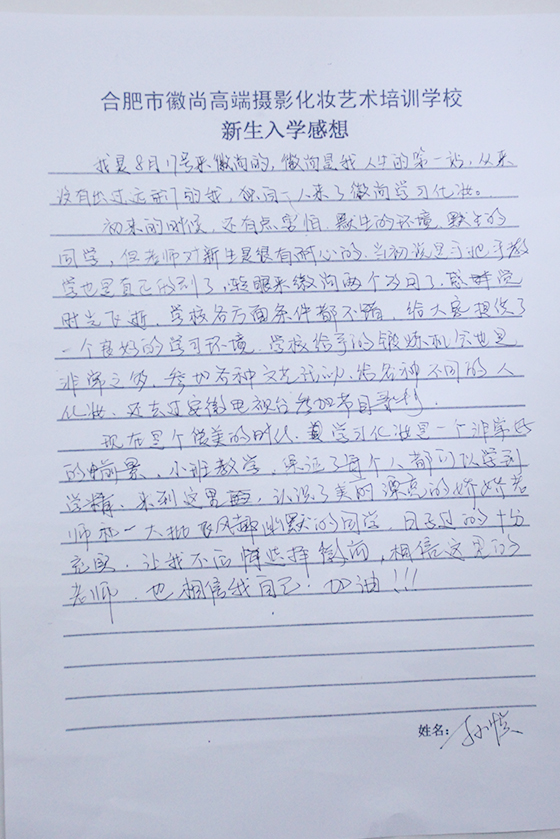 合肥市徽尚高端摄影化妆艺术培训学校
新生入学感想
我是8月17号来徽尚的,徽尚是我人生的第一站,从来
没有出过远门的我,独自一人来了徽尚学习化妆。
初来的时候,还有点害怕.默生的环境.默生的
同学,但老师对新生是很有耐心的.当初说是手把手教
学也是真正做到了,转眼来徽尚两个多月了.感觉
时光飞逝.学校各方面条件都不错,给大家提供了
一个良好的学习环境.学校给予的锻炼机会也是
非常之多.参加各种文艺活动.给各种不同的人
化妆.还去过安徽电视台参加节目录制.
现在是个微美的时代.学习化妆是一个非常好
的前景,小班教学,保证了每个人都可以学到
学精.来到这里,认识了美的漂亮的娇娇老
师和一大批风趣幽默的同学.日子过的十分
充实.让我不后悔选择徽尚,相信这里的
老师.也相信我自己!加油!!!
姓名: